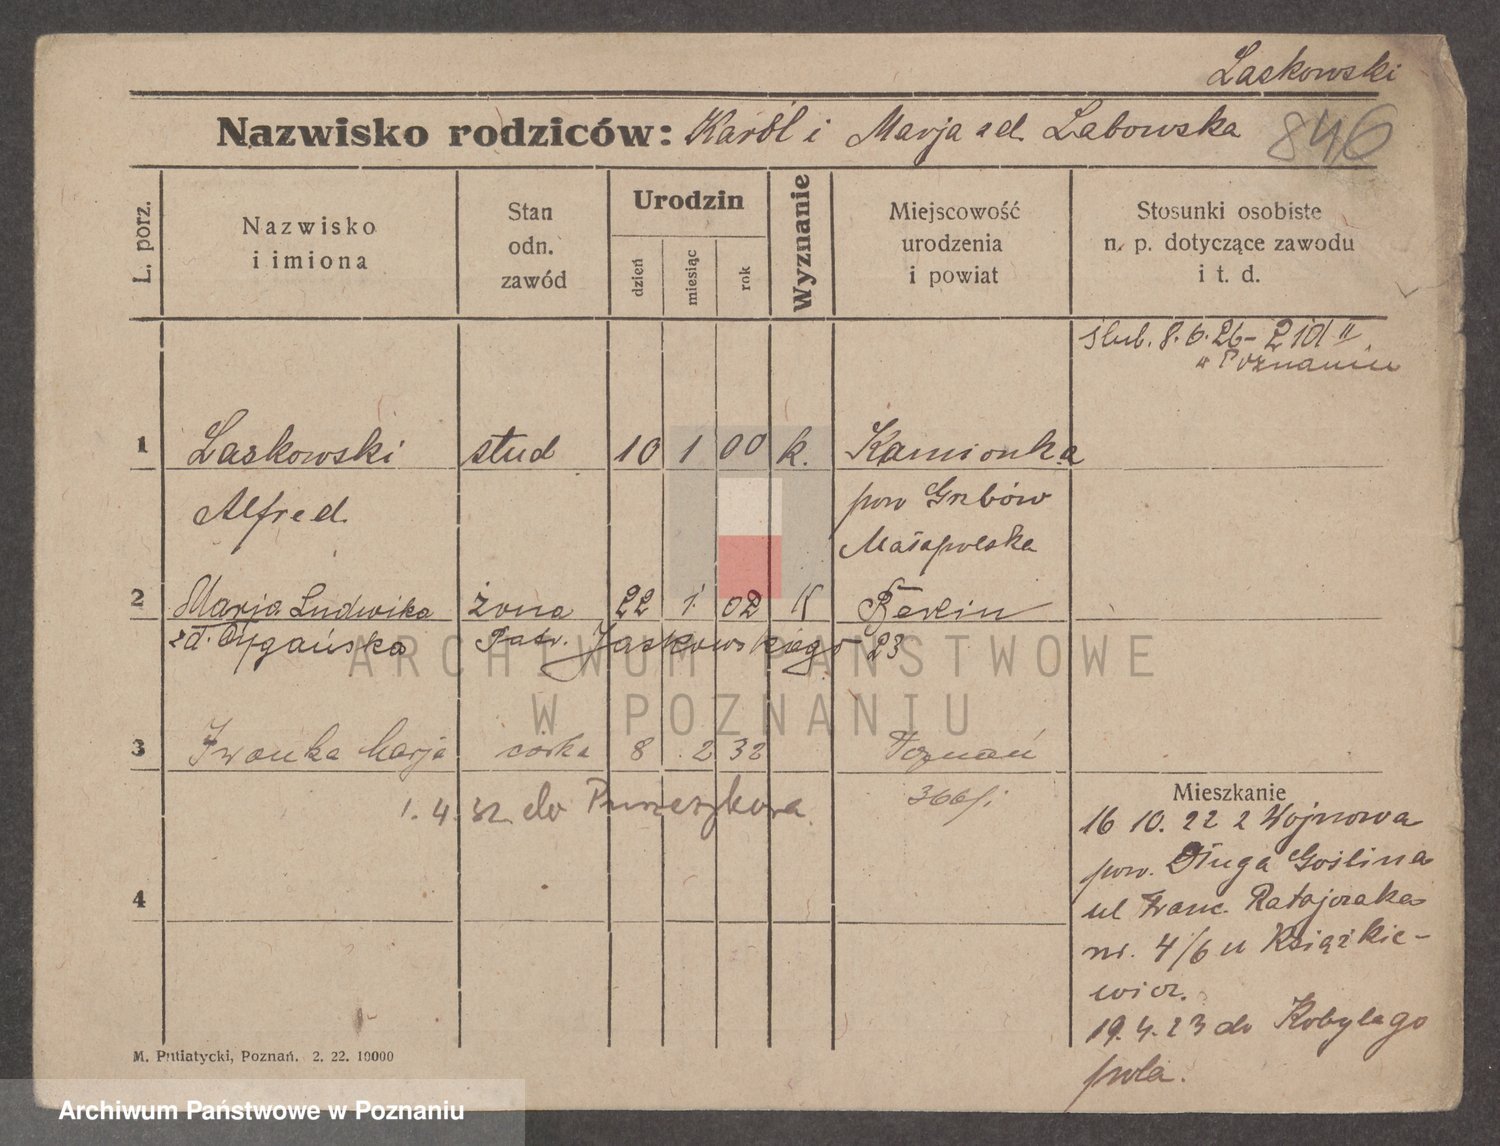 Laskowski
Nazwisko rodziców: Karól i Marja zd. Labowska
846
L. porz.
Nazwisko
i imiona
Stan
odn.
zawód
Urodzin
dzień
miesiąc
rok
Wyznanie
Miejscowość
urodzenia
i powiat
Stosunki osobiste
n. p. dotyczące zawodu
i t. d.
ślub. 8. 6. 26 -
w Poznaniu
1 Laskowski stud 10 1 00 k. Kamionka
Alfred pow Grzbów
Małopolska
2 Marja Ludwika żona 22 1. 02 K Berlin
zd. Cygańska Patr. Jaskowskiego 23
3 Iwonka Marja córka 8 2 32 Poznań
1. 4. 32 do Puszczykowa.
Mieszkanie
16 10. 22 z Wojnowa
pow. Długa Goślina
ul Franc. Ratajczaka
nr. 4/6 u Książkie-
wicz.
19. 4. 23 do Kobylego
pola.
4
M. Putiatycki, Poznań. 2. 22. 10000
ARCHIWUM PAŃSTWOWE
W POZNANIU
Archiwum Państwowe w Poznaniu